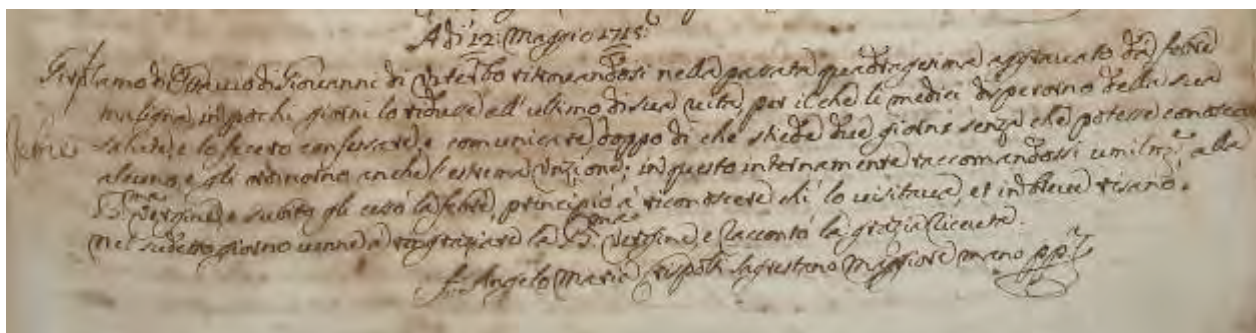 A di 12: Maggio 1715:
Girolamo di Ottavio di Giovanni di Viterbo ritrovandosi nella passata quadragesima aggravato da febre
maligna, in pochi giorni lo ridusse all'ultimo di sua vita, per il che li medici disperorno della sua
Febre
salute, e lo fecero confessare, e comunicare doppo di che stiede due giorni senza che potesse conoscere
alcuno, e gli ordinorno anche l'estrema Unzione; in questo internamente raccomandossi umilmte. alla
Bma. Vergine, e subito gli cessò la febre, principiò à riconoscere chi lo visitava, et in breve risanò.
Nel sudetto giorno venne a ringraziare la Bma. Vergine, e raccontò la grazia ricevuta.
Fr. Angelo Maria Rispoli Sagrestano Maggiore mano ppa.